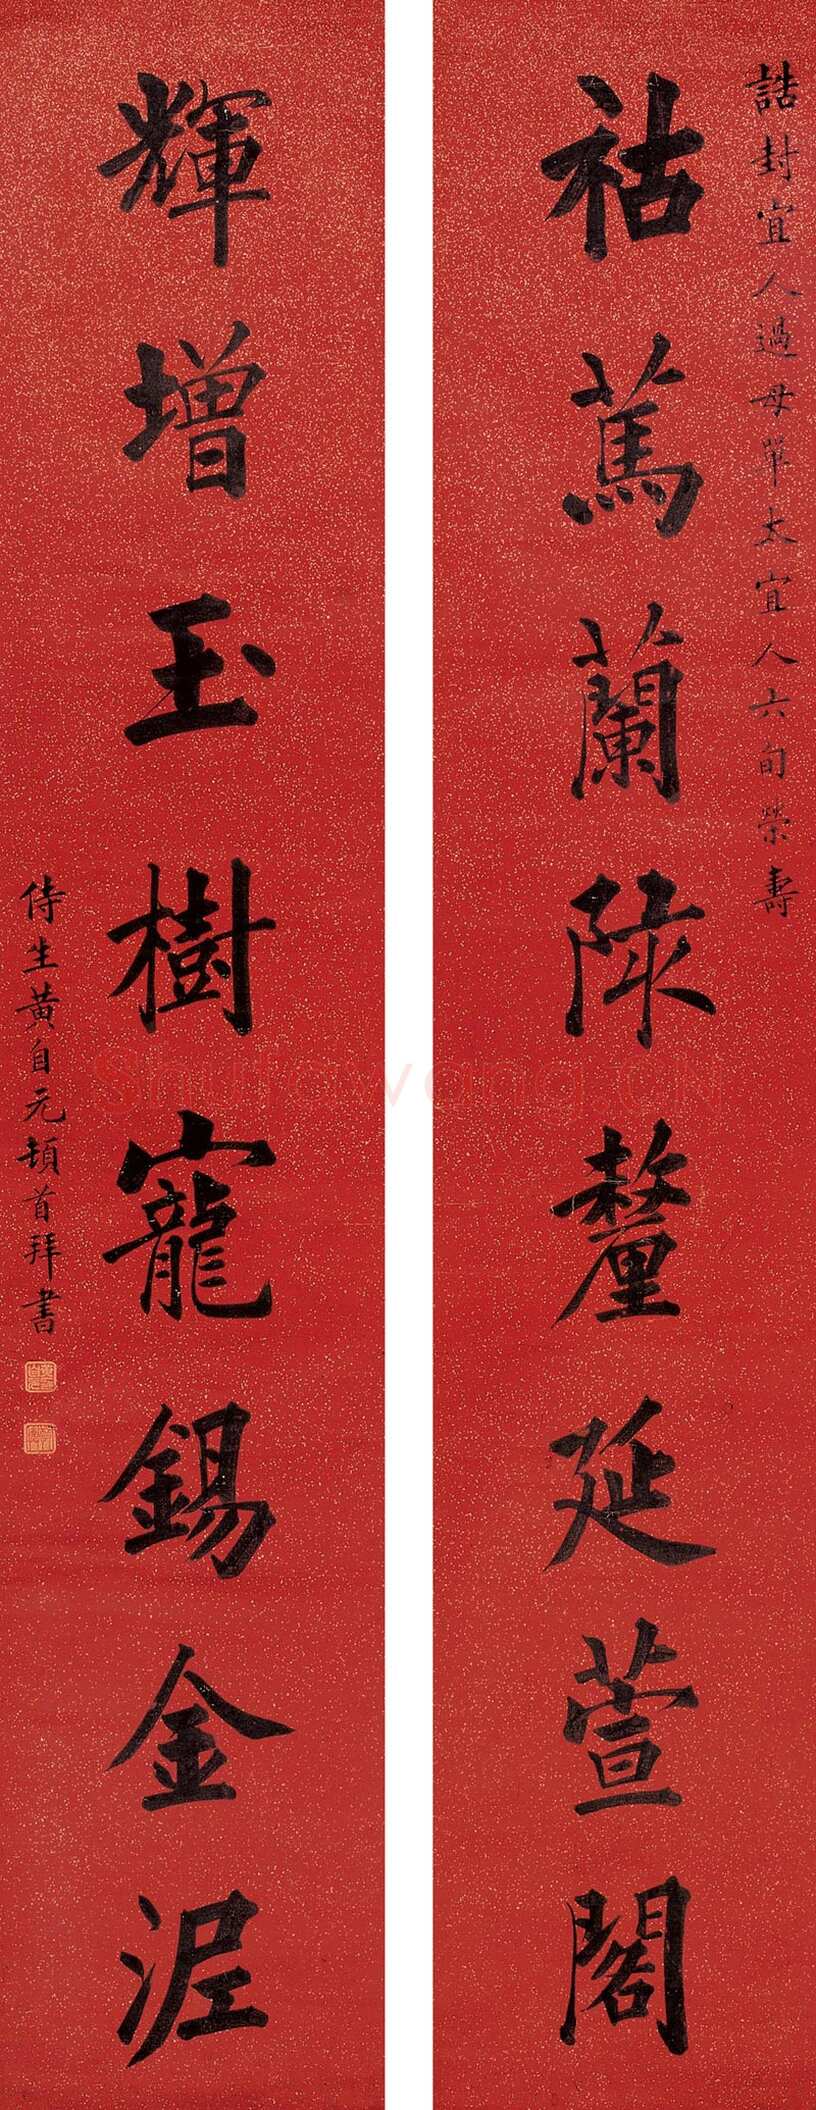 誥封宜人過母單太宜人六旬榮壽
祜篤蘭陔釐延萱閣
輝增玉樹寵錫金泥
侍生黄自元頓首拜書
Shufawang.CN